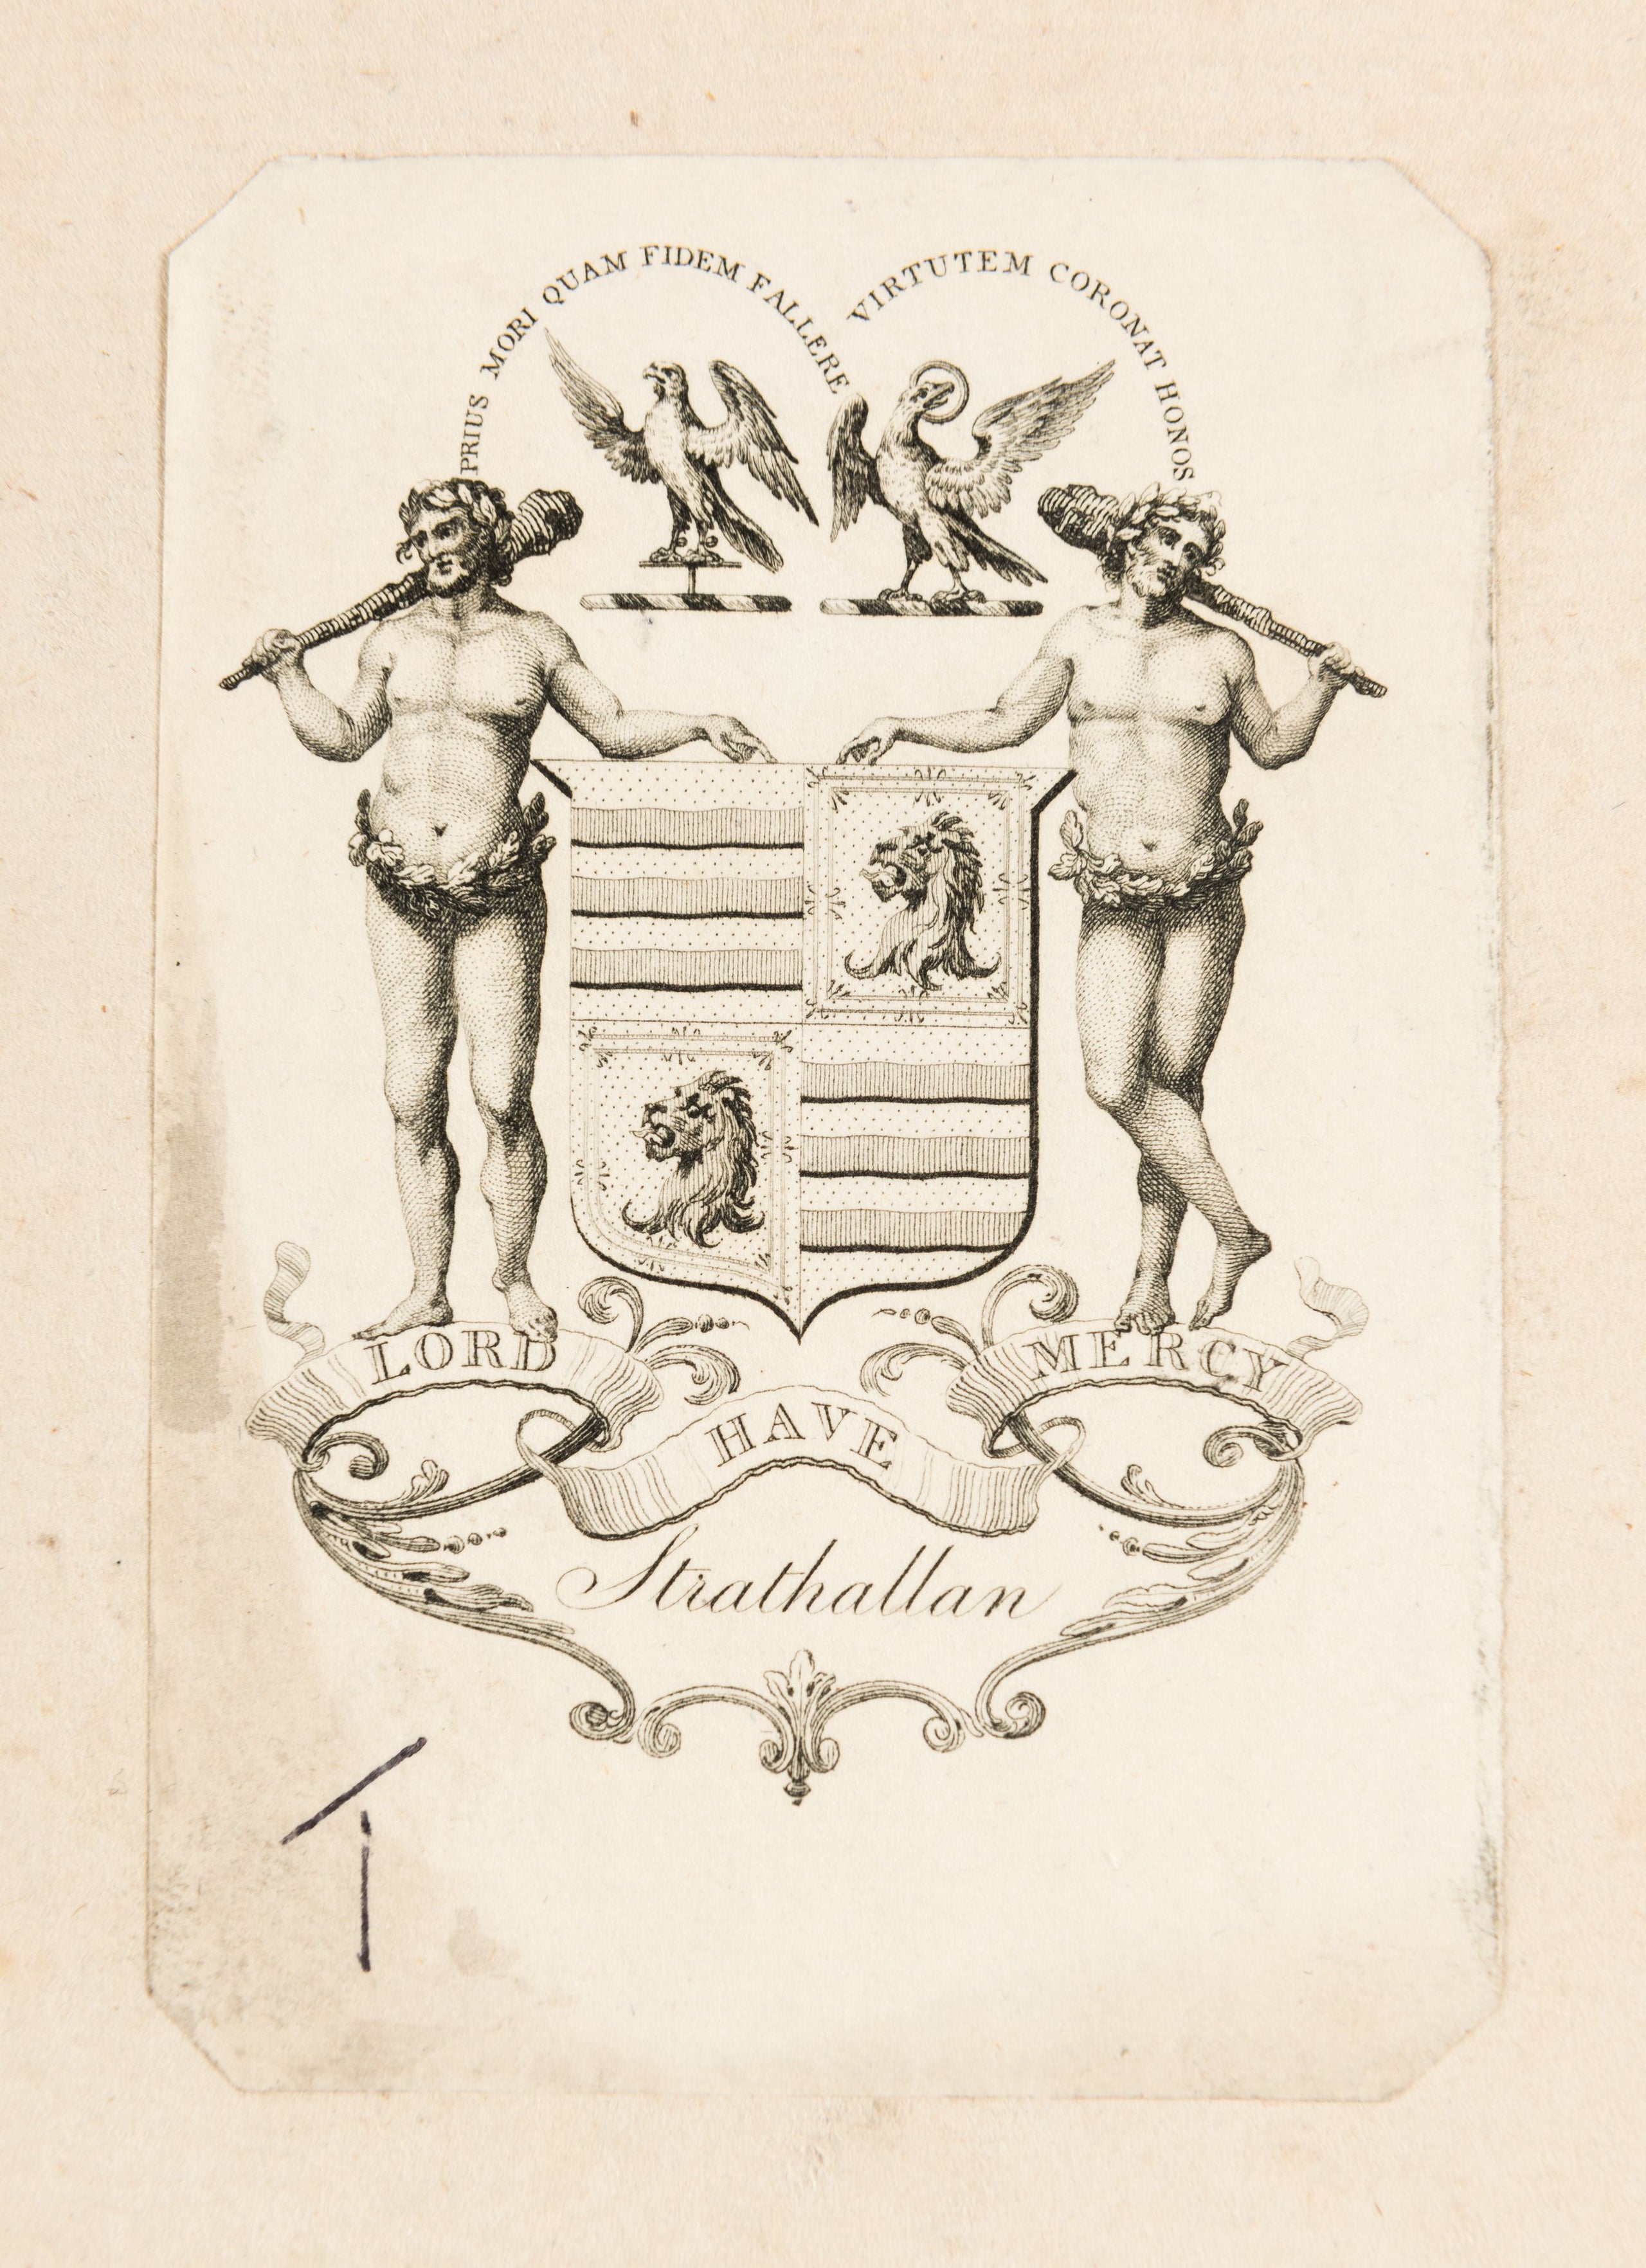 PRIUS MORI QUAM FIDEM FALLERE
VIRTUTEM CORONAT HONOS
LORD
HAVE
MERCY
Strathallan